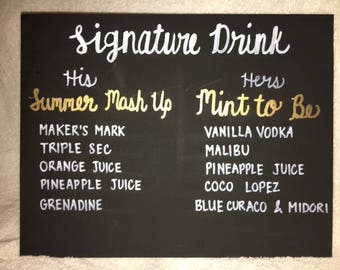 Signature Drink
His
Summer Mash Up
MAKER'S MARK
TRIPLE SEC
ORANGE JUICE
PINEAPPLE JUICE
GRENADINE
Hers
Mint to Be
VANILLA VODKA
MALIBU
PINEAPPLE JUICE
COCO LOPEZ
BLUE CURACO & MIDORI